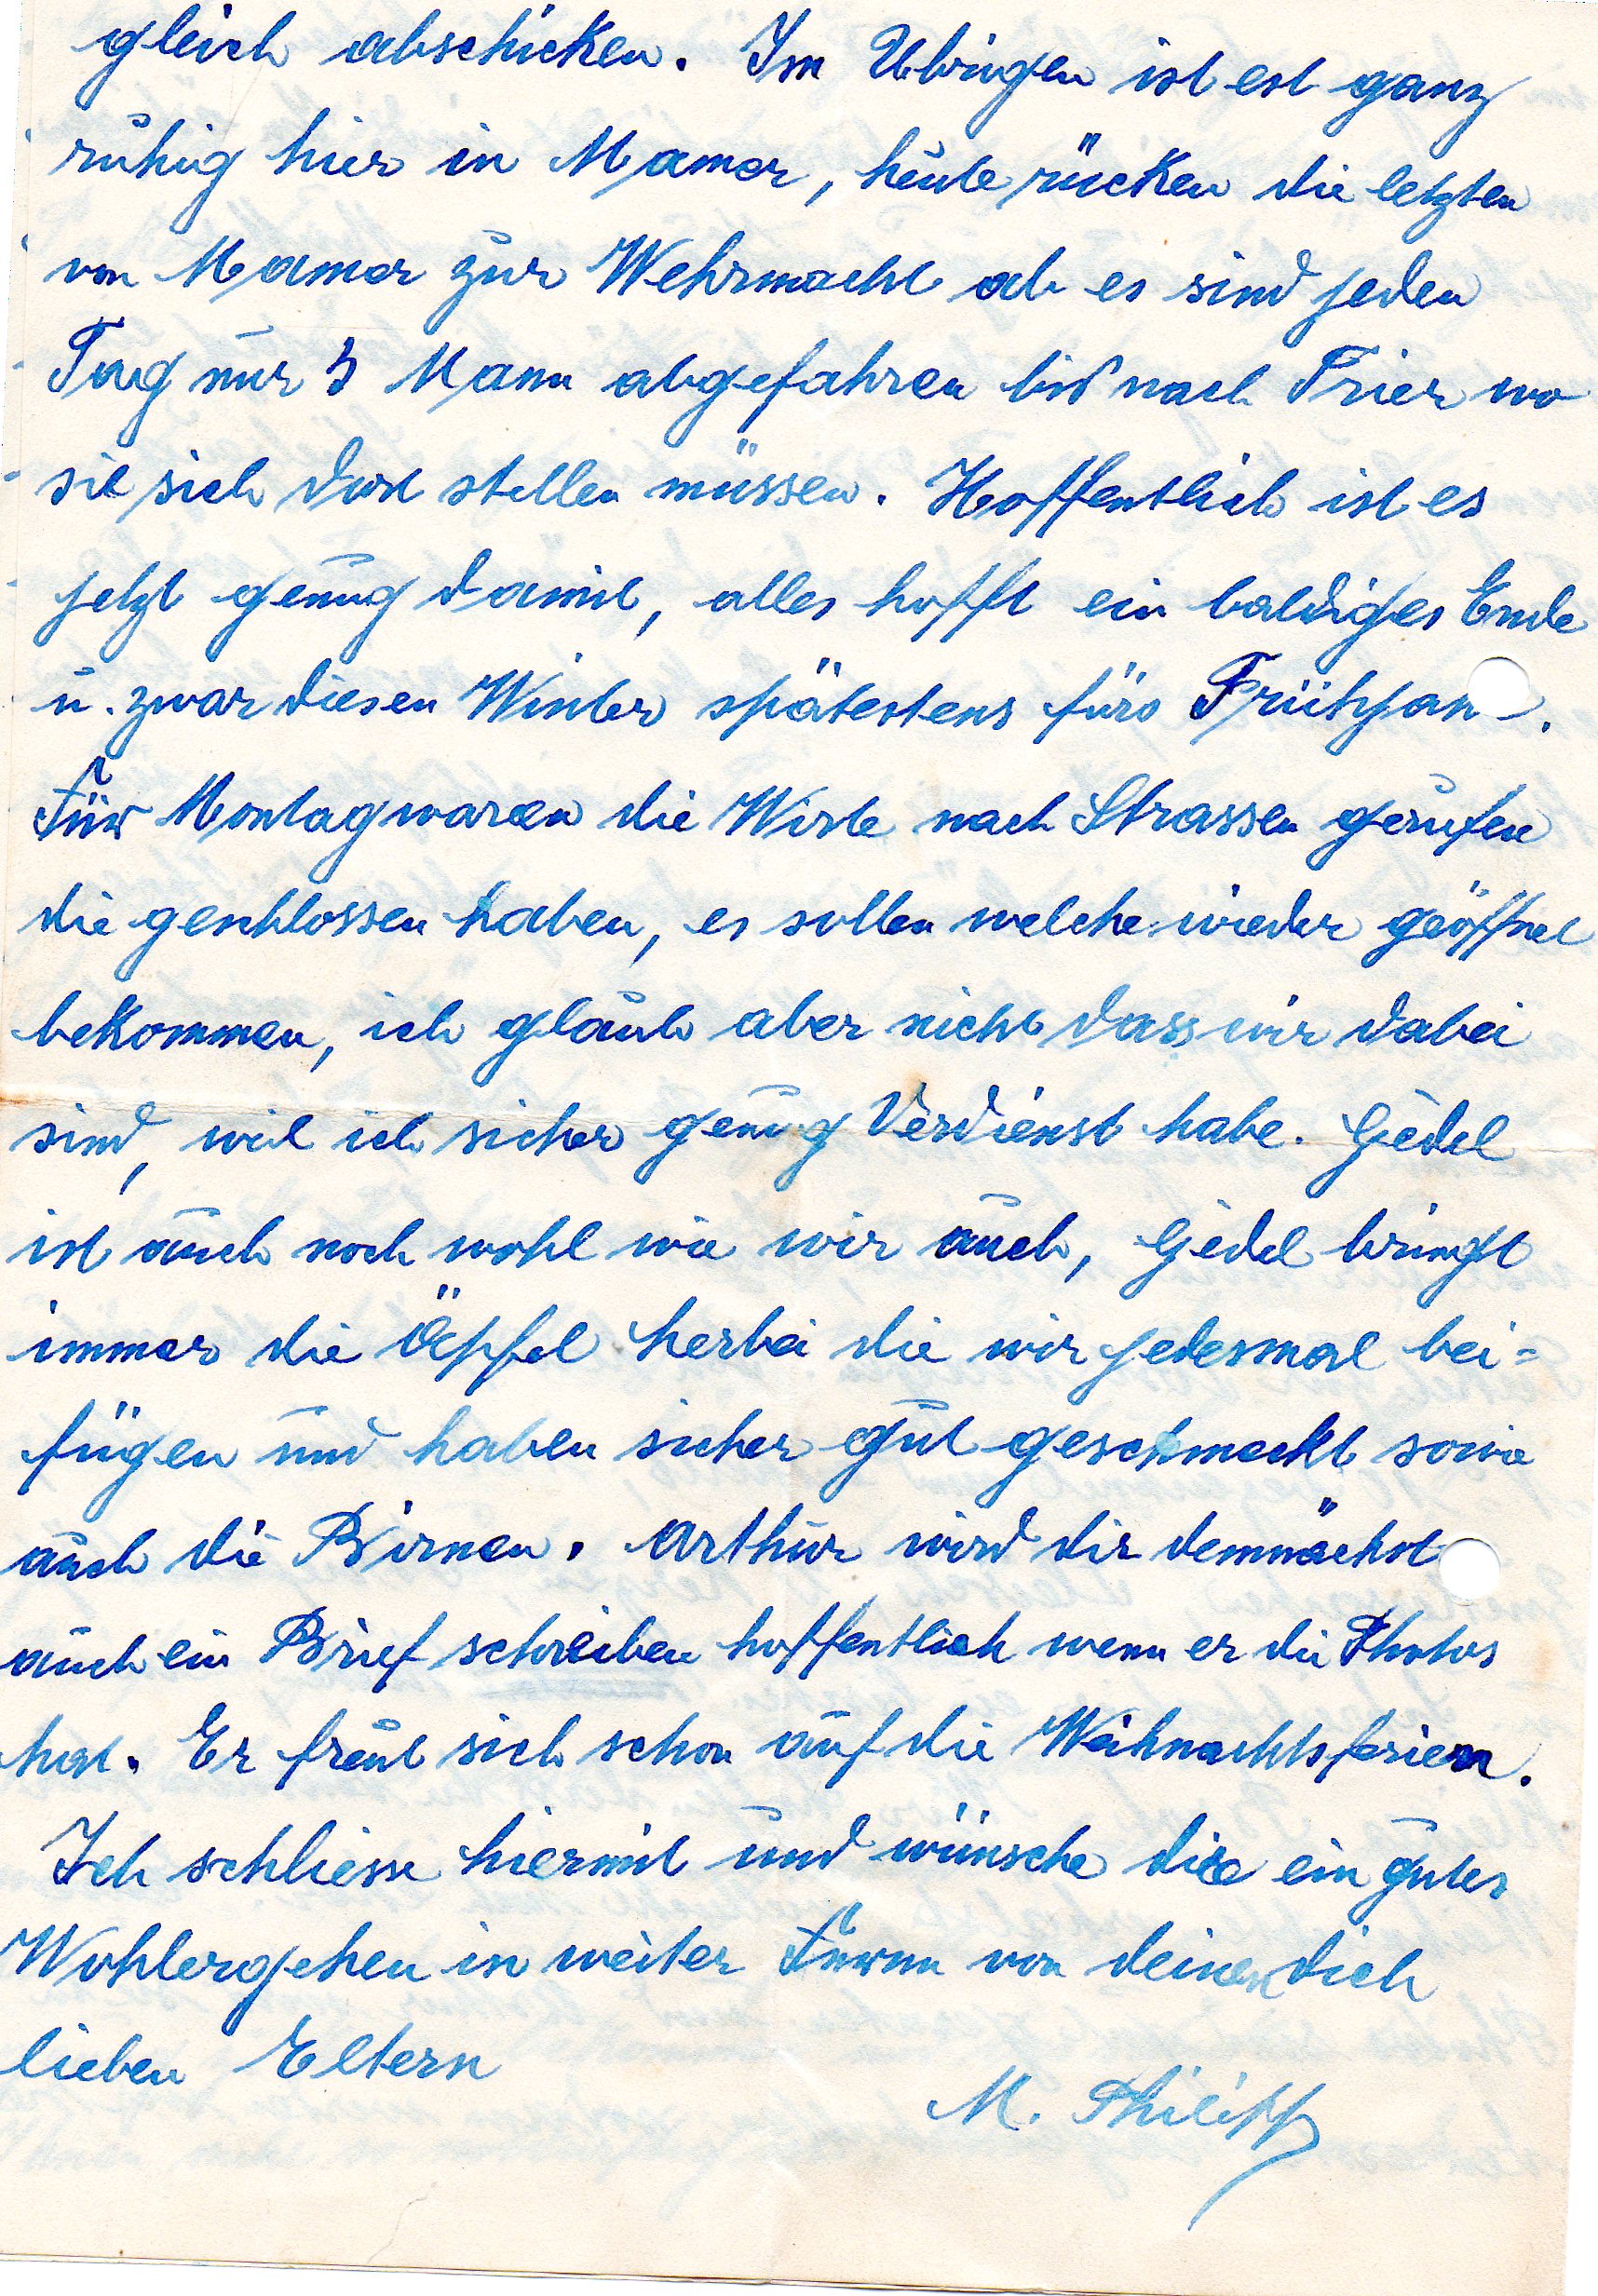 gleich abschicken. Im Übrigen ist est ganz
ruhig hier in Mamer, heute rücken die letzten
von Mamer zur Wehrmacht ab es sind jeden
Tag nur 5 Mann abgefahren bis nach Trier wo
sie sich dort stellen müssen. Hoffentlich ist es
jetzt genug damit, alles hofft ein baldiges Ende
u. zwar diesen Winter spätestens fürs Frühjan.
Für Montag waren die Wirte nach Strassen gerufen
die geschlossen haben, es sollen welche wieder geöffnet
bekommen, ich glaub aber nicht dass wir dabei
sind, weil ich sicher genug Verdienst habe. Gédel
ist auch noch wohl wie wir auch, Gédel bringt
immer die Äpfel herbei die wir jedesmal bei=
fügen und haben sicher gut geschmeckt sowie
auch die Birnen. Arthur wird dir demnächst
auch ein Brief schreiben hoffentlich wenn er die Photos
hat. Er freut sich schon auf die Weihnachtsferien.
Ich schliesse hiermit und wünsche dir ein gutes
Wohlergehen in weiter von deinen dich
lieben Eltern
M. Philipp